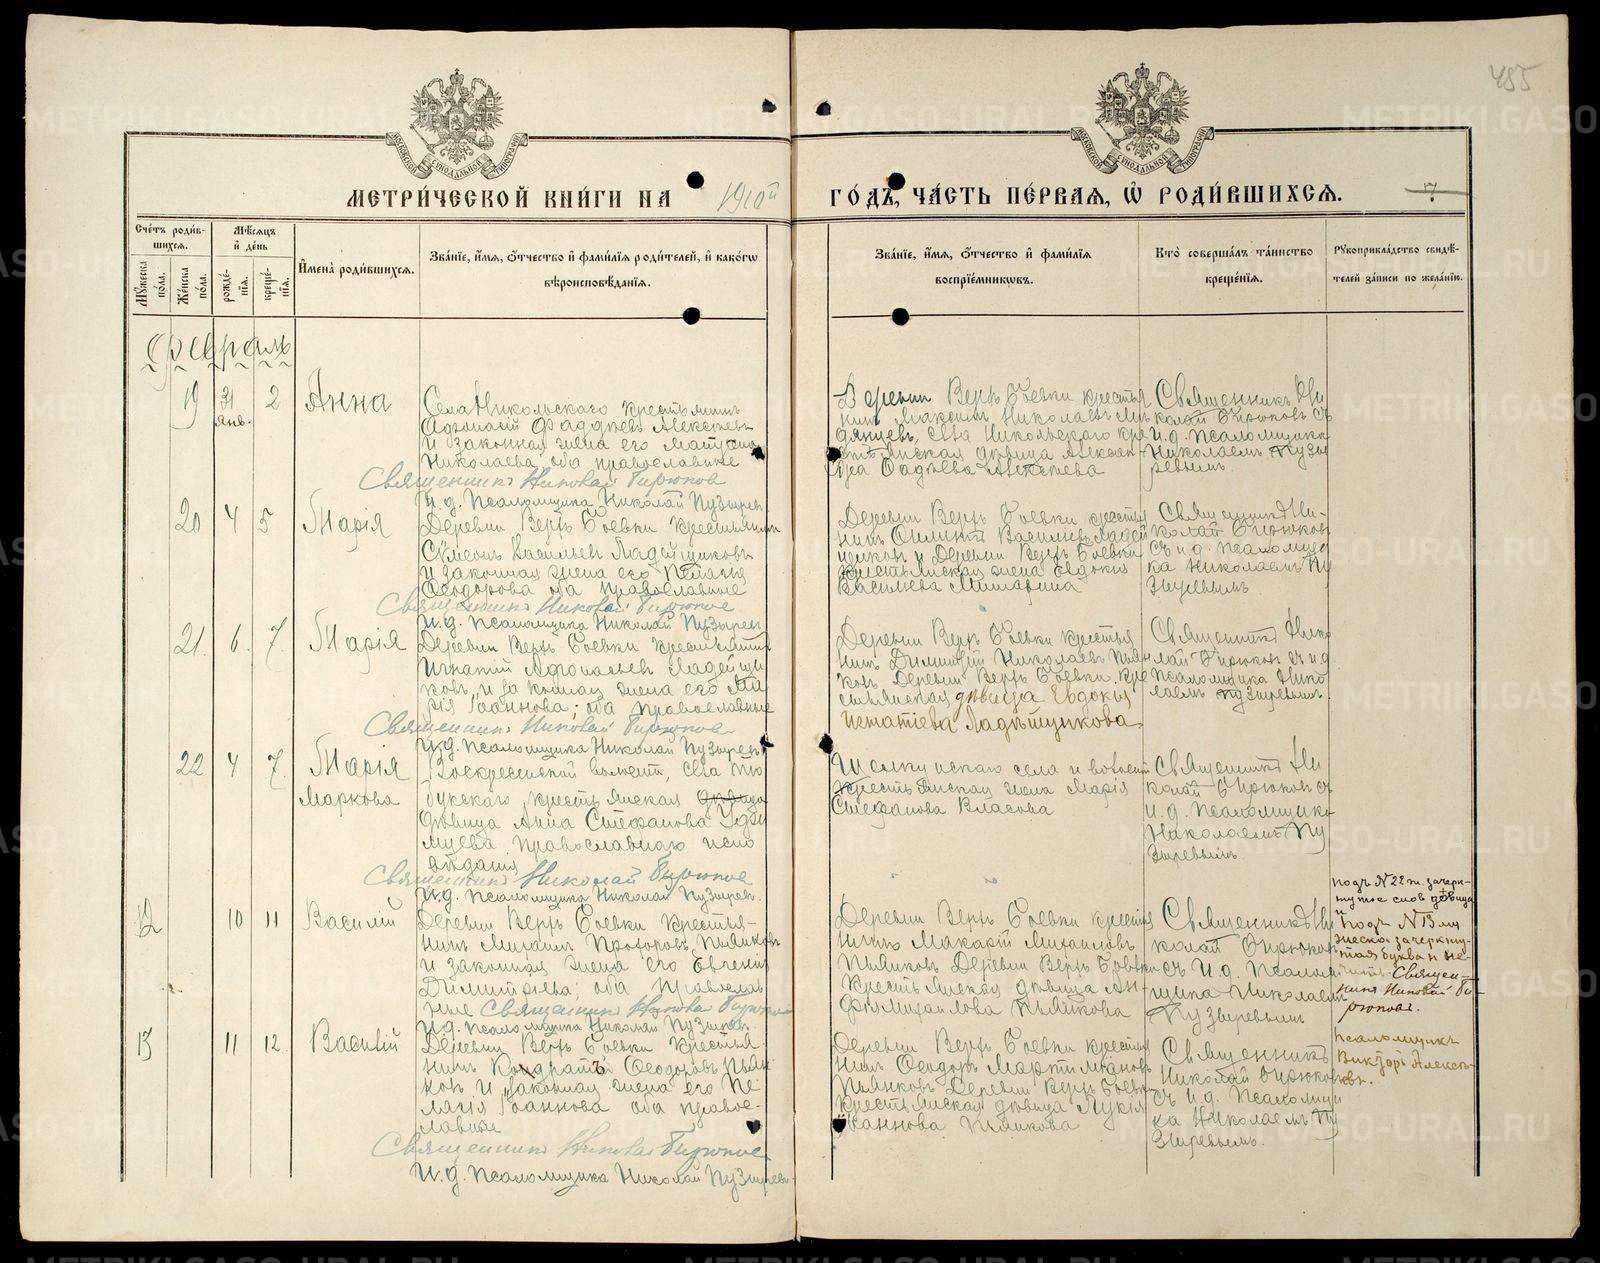 485
МОСКОВСКОЙ СѴНОДАЛЬНОЙ ТИПОГРАФІИ
МОСКОВСКОЙ СѴНОДАЛЬНОЙ ТИПОГРАФІИ
МЕТРИ́ЧЕСКОЙ КНИ́ГИ НА 1910й ГО́ДЪ, ЧА́СТЬ ПЕ́РВАЯ, Ѡ҆ РОДИ́ВШИХСЯ. 7
Сче́тъ роди́вшихся.
Мѣ́сяцъ и҆ де́нь
Мꙋ́жеска по́ла.
Же́нска по́ла.
рожде́нїѧ.
креще́нїѧ.
И҆мена̀ роди́вшихсѧ.
Зва́нїе, и҆́мѧ, о҆́тчество и҆ фами́лїѧ роди́телей, и҆ како́гѡ
вѣроисповѣ́данїѧ.
Зва́нїе, и҆́мѧ, о҆́тчество и҆ фами́лїѧ
воспрїе́мникѡвъ.
Кто̀ соверша́лъ та́инство
креще́нїѧ.
Рꙋкоприкла́дство свидѣ́-
телей за́писи по жела́нїю.
Февраль
19 31 Янв. 2 Анна
Села Никольскаго крестьянинъ
Афонасій Фаддѣевъ Алексѣевъ
и законная жена его Матрона
Николаева оба православные
Священникъ Николай Бирюковъ
И.д. псаломщика Николай Пузыревъ
Деревни Верхъ Боевки крестья
нинъ Максимъ Николаевъ
Села Никольскаго кре
стьянская дѣвица Алексан
дра Фадѣева Алексѣева
Священникъ Ни
колай Бирюковъ съ
и.д. псаломщика
Николаемъ Пузы
ревымъ
20 4 5 Марія
Деревни Верхъ Боевки крестьянинъ
Сѵмеонъ Васильевъ Ладейщиковъ
и законная жена его Пелагія
Ѳеодорова оба православные
Священникъ Николай Бирюковъ
И.д. псаломщика Николай Пузыревъ
Деревни Верхъ Боевки крестья
нинъ Василіевъ Ладей
щиковъ и Деревни Верхъ Боевки
крестьянская жена Евдокія
Васильева
Священникъ Ни-
колай Бирюковъ
съ и.д. псаломщи
ка Николаемъ Пу
зыревымъ
21. 6. 7. Марія
Деревни Верхъ Боевки крестьянинъ
Игнатій Афонасьевъ Ладейщи
ковъ, и законная жена его Ма
рія Іоаннова; оба православные
Священникъ Николай Бирюковъ
И.д. псаломщика Николай Пузыревъ
Деревни Верхъ Боевки крестья
нинъ Димитрій Николаевъ Пьян
ковъ Деревни Верхъ Боевки кре
стьянская дѣвица Евдокія
Игнатіева Ладѣищикова
Священникъ Нико
лай Бирюковъ съ и.д
псаломщика Нико
лаемъ Пузыревымъ.
22 4 7 Марія
Маркова
Воскресенской волости, села Тю
букскаго, крестьянская дѣвица
дѣвица Анна Стефанова
православнаго испо
вѣданія
Священникъ Николай Бирюковъ
И.д. псаломщика Николай Пузыревъ
села и волости
крестьянская жена Марія
Стефанова Власова
Священникъ Ни
колай Бирюковъ съ
и.д. псаломщика
Николаемъ Пу
зыревымъ
12 10 11 Василій
Деревни Верхъ Боевки крестья-
нинъ Михаилъ Прохоровъ Пьянковъ
и законная жена его Евгенія
Димитріева; оба православ
ные Священникъ Николай Бирюковъ
И.д. псаломщика Николай Пузыревъ
Деревни Верхъ Боевки крестья
нинъ Макарій Михаиловъ
Пьянковъ Деревни Верхъ Боевки
крестьянская дѣвица Ан-
на Михаилова Пьянкова
Священникъ Ни
колай Бирюковъ
съ И.д. псалом
щика Николаемъ
Пузыревымъ
Подъ №22 ж. зачерк-
нутое слов дѣвица
и подъ №13
зачеркну-
тая буква н не-
читать Священ-
никъ Николай Би-
рюковъ.
Псаломщикъ
Викторъ Алексѣ-
евъ.
13 11 12. Василій
Деревни Верхъ Боевки крестья-
нинъ Кондратъ Ѳеодоровъ Пьян-
ковъ и законная жена его Пе
лагія Іоаннова оба правос-
лавные
Священникъ Николай Бирюковъ
И.д. псаломщика Николай Пузыревъ
Деревни Верхъ Боевки крестья
нинъ Ѳеодоръ Мартиміановъ
Пьянковъ Деревни Верхъ Боевки
крестьянская дѣвица Лукія
Іоаннова Пьянкова
Священникъ
Николай Бирюковъ
съ и.д. псаломщи
ка Николаемъ Пу
зыревымъ.
METRIKI.GASO-URAL.RU